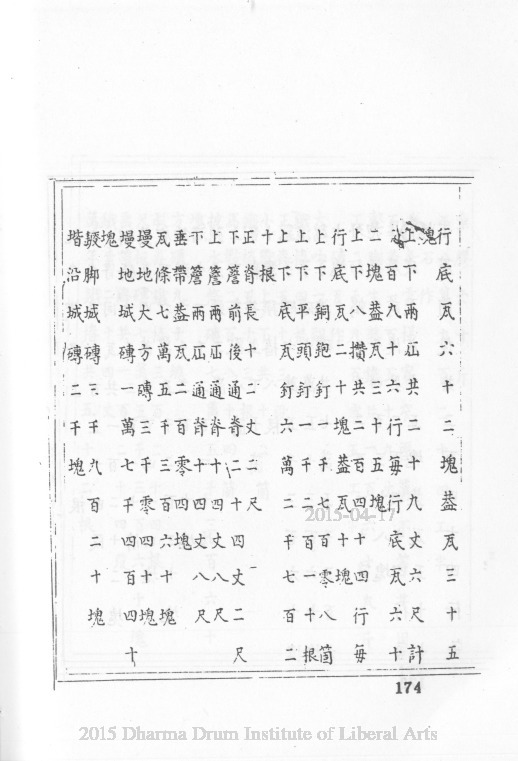 行底瓦六十二塊葢瓦三十五
塊
上下兩㕔共二十九丈六尺計
百九十六行每行底瓦六十
二塊葢瓦三十五塊
上下八攢共二百十四行每
行底瓦二十塊葢瓦十塊
上下銅鉋釘一千七百零八箇
上下平頭釘一千二百一十根
上下底瓦釘六萬二千七百二
十根
正脊長十二丈二尺
下簷前後通脊二十四丈二尺
上簷兩通脊十四丈八尺
下簷兩通脊十四丈八尺
垂帶葢瓦二百零四塊
瓦條七萬五千三百六十塊
墁地大方磚三千零四十塊
墁地城磚一萬七千四百四十
塊
脚城磚三千九百二十塊
堦沿城磚二千塊
174
2015-04-17
2015 Dharma Drum Institute of Liberal Arts